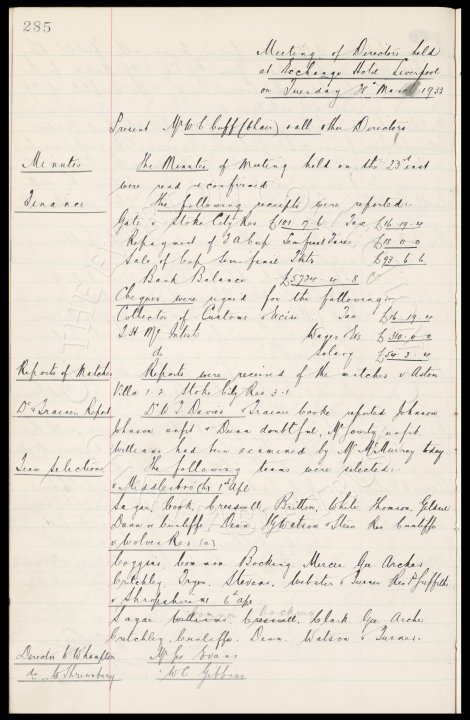 285
Meeting of Directors held
at Exchange Hotel Liverpool
on Tuesday March 1933
Present Mr W. C. Cuff (Chair) & all other Directors
Minutes
The Minutes of Meeting held on the 23rd inst
were read & confirmed.
Finance
The following receipts were reported:
Gate v Stoke City Res £101. 9. 6 Tax £16. 19. 4
Repayment of F A Cup Semifinal £18. 0. 0
Sale of Cup Semi-final Tkts £93. 6. 6
Bank Balance £5734. 4. 8
Cheques were signed for the following:
Collector of Customs & Excise Tax £16. 19. 4
T. H. McIntosh Wages £310. 0. 0
do Salary £54. 3. 4
Reports of Matches
Reports were received of the matches v Aston
Villa 1-2 Stoke City Res 3-1
Dr & Trainer Report
Dr & Trainer Cooke reported Johnson
Johnson unfit & Dunn doubtful. McGourty unfit.
Williams had been examined by Mr McMurray today
Team Selection
The following teams were selected:
v Middlesbro (h) 1st Apl
Sagar, Cook, Cresswell, Britton, White Thomson, Geldard
Dunn or Cunliffe, Dean, Watson & Stein Res Cunliffe
v Wolves Res (a)
Coggins, Common Bocking Mercer, Gee Archer
Critchley, Stevens, Webster & Turner Res P. Griffiths
v Shropshire 6th Apl
Common Bocking
Sagar Williams Cresswell. Clark. Gee Archer
Critchley, Cunliffe. Dean Watson & Turner.
Director to W'hampton Mr Jas Evans
do to Shrewsbury W. C. Gibbins